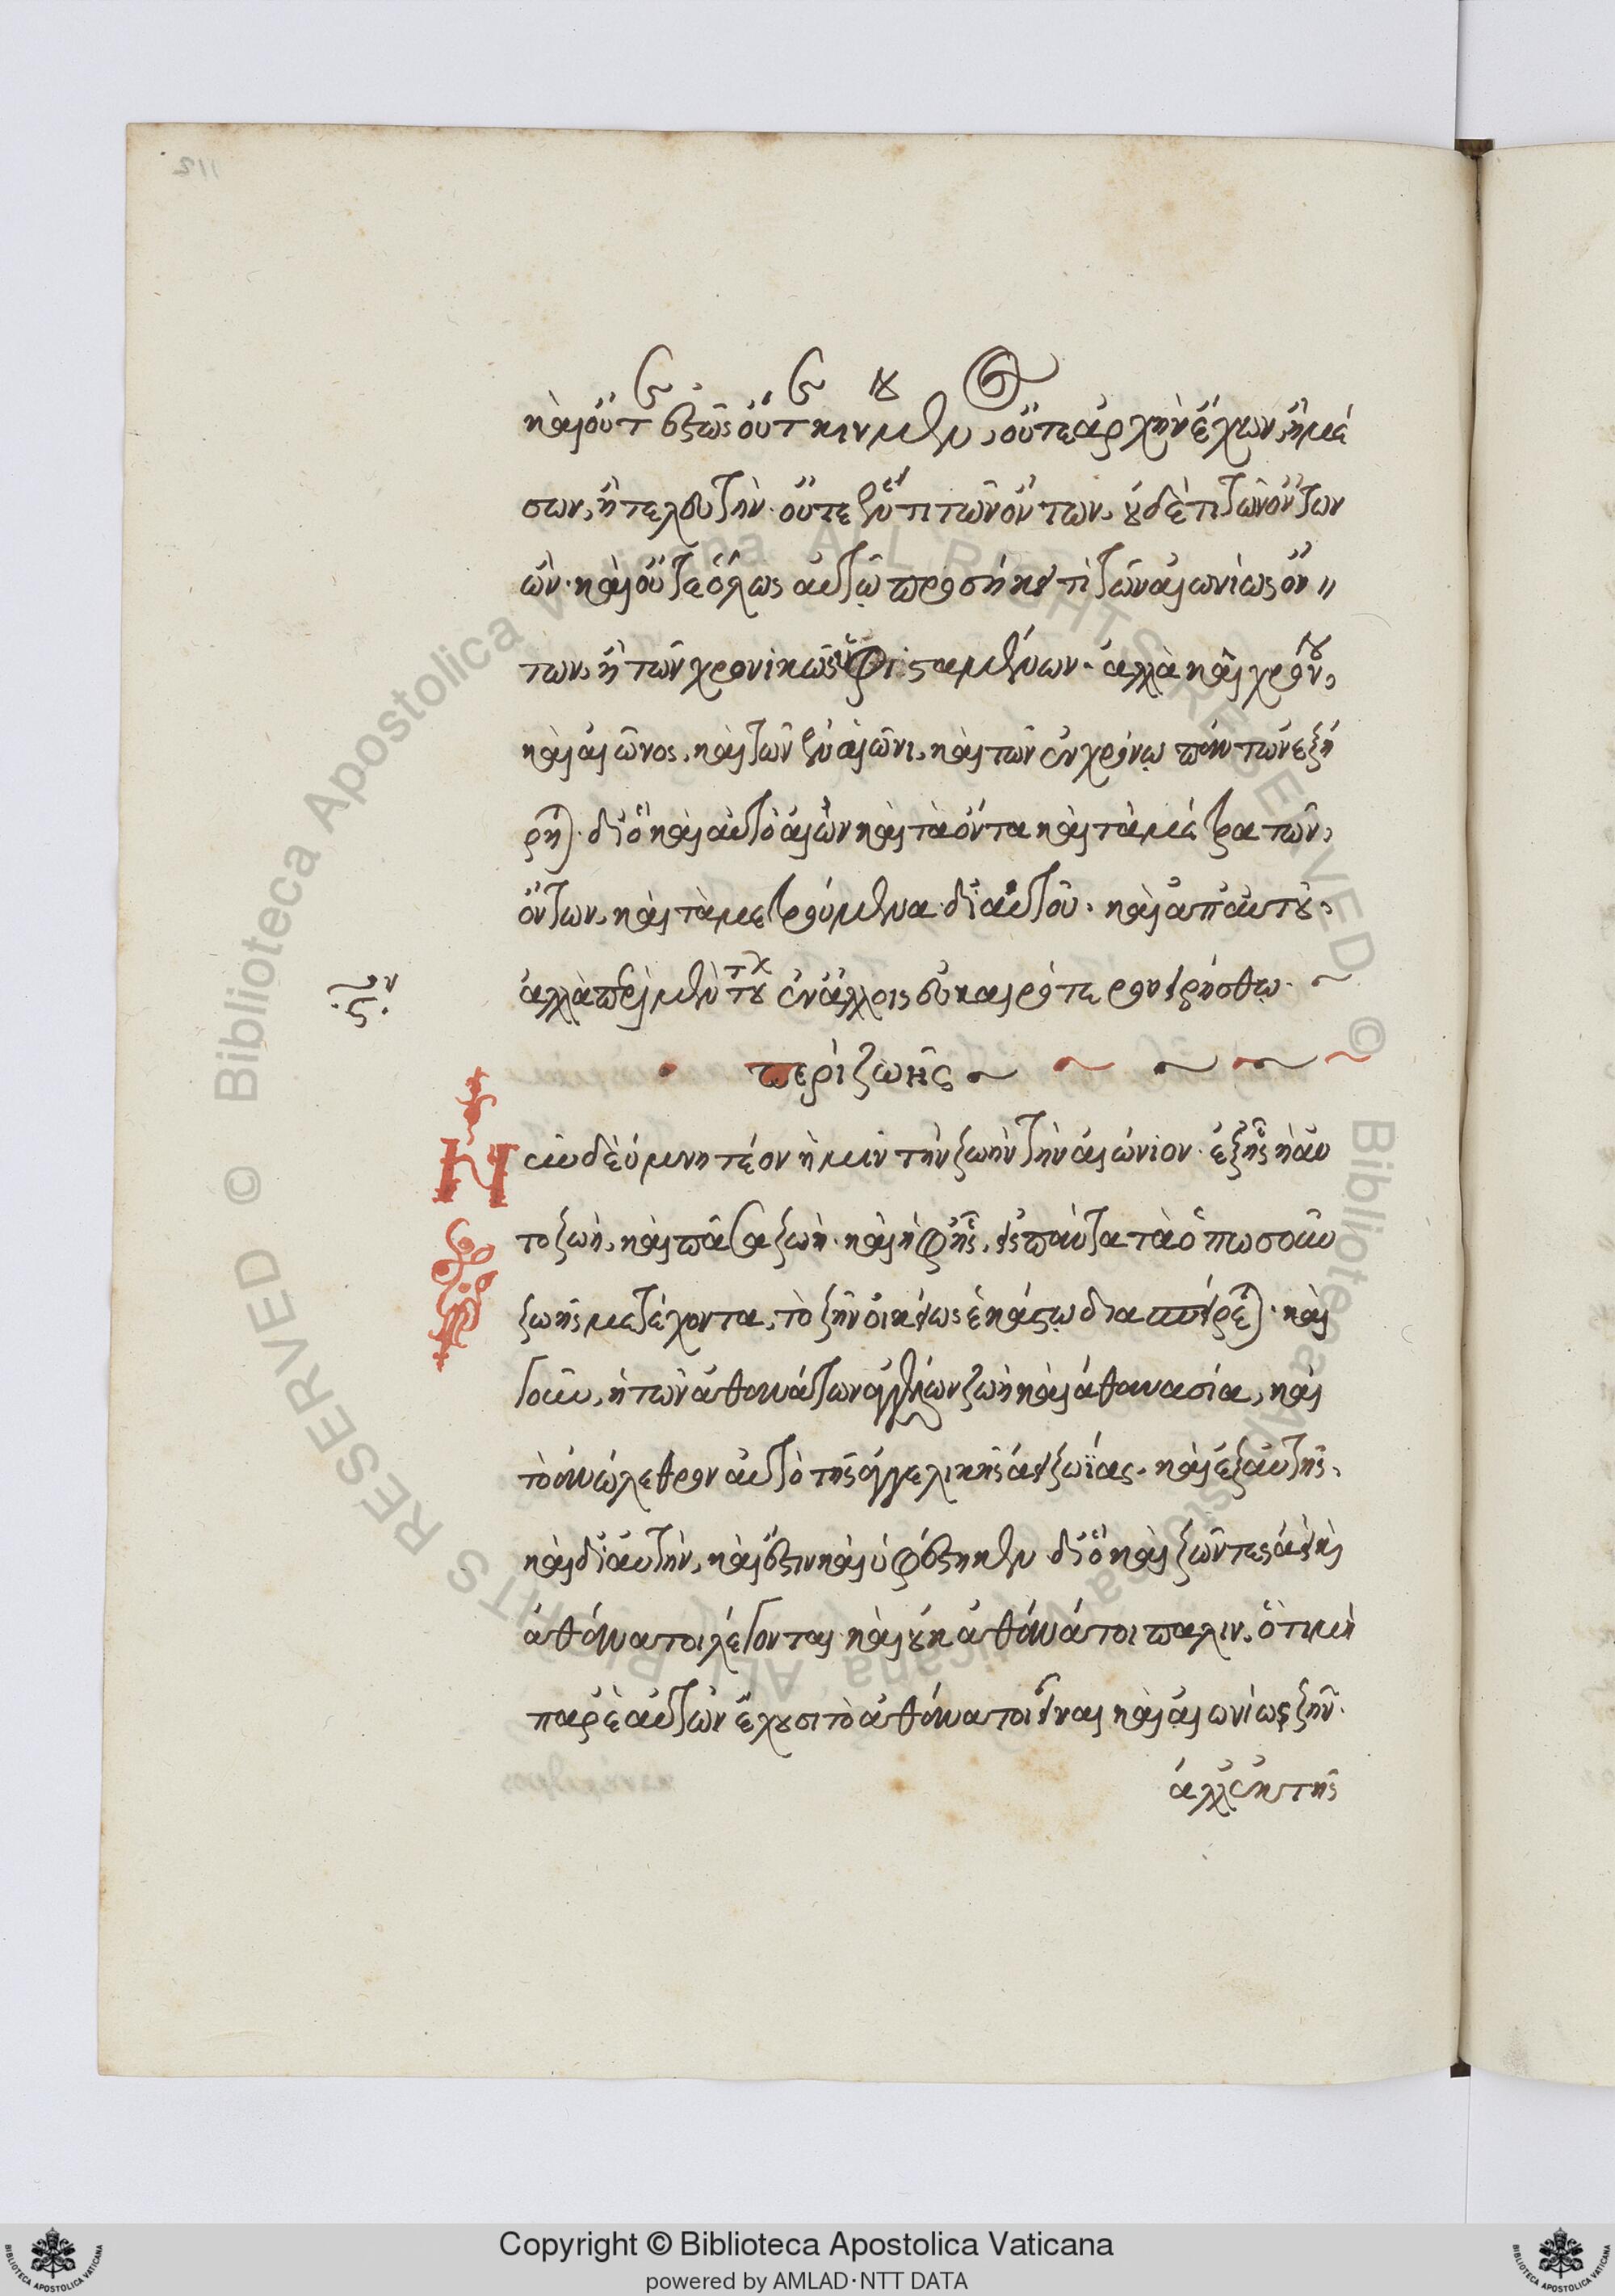 καὶ οὔτε ἑστὼς οὔτε κινούμενος, οὔτε ἀρχὴν ἔχων, ἢ μέ
σων, ἢ τελευτὴν. οὔτε ἔν τι τῶν ὄντων, οὐδὲ τι τῶν ὄντων
ὢν. καὶ οὔτε ὅλως αὐτῷ προσήκει τὶ τῶν αἰωνίως ὄν〃
των, ἢ τῶν χρονικῶς ὑφισταμένων. ἀλλὰ καὶ χρόνου,
καὶ αἰῶνος, καὶ τῶν ἐν αἰῶνι, καὶ τῶν ἐν χρόνῳ πάντων ἐξῄ
ρηται. διὸ καὶ αὐτὸ αἰὼν καὶ τὰ ὄντα καὶ τὰ μέτρα τῶν,
ὄντων, καὶ τὰ μετρούμενα δι᾽ αὐτοῦ. καὶ ἀπ᾽ αὐτοῦ,
ἀλλὰ περὶ μὲν τούτων ἐν ἄλλοις εὐκαιρότερον εἰρήσθω. ~
περὶ ζωῆς ~ ~ ~ ~ ~
Νῦν δὲ ὑμνητέον ἡμῖν τὴν ζωὴν τὴν αἰώνιον. ἐξ ἧς ἡ αὐ
τοζωὴ, καὶ πᾶσα ζωὴ. καὶ ὑφ᾽ ἧς, εἰς πάντα τὰ ὁπωσοῦν
ζωῆς μετέχοντα, τὸ ζῆν οἰκείως ἑκάστῳ διασπείρεται. καὶ
γοῦν, ἡ τῶν ἀθανάτων ἀγγέλων ζωὴ καὶ ἀθανασία, καὶ
τὸ ἀνώλεθρον αὐτὸ τῆς ἀγγελικῆς ἀειζωΐας. καὶ ἐξ αὐτῆς,
καὶ δι᾽ αὐτὴν, καὶ ἔστιν καὶ ὑφέστηκεν διὸ καὶ ζῶντες ἀεὶ καὶ
ἀθάνατοι λέγονται. καὶ οὐκ ἀθάνατοι πάλιν. ὅτι μὴ
παρ᾽ ἑαυτῶν ἔχουσι τὸ ἀθάνατοι εἶναι καὶ αἰωνίως ζῆν.
ἀλλ᾽ ἐκ τῆς